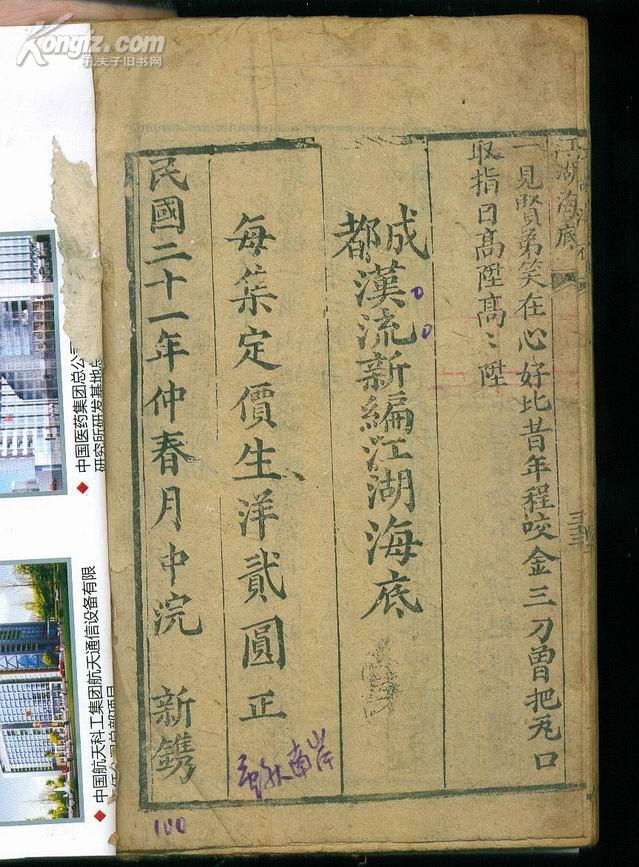 Kongfz.com
孔夫子旧书网
江湖海底
一見賢弟笑在心好比昔年程咬金三刀曾把瓦口
取指日高陞高〻陞
成都漢流新編江湖海底
每集定價生洋貳圓正
民國二十一年仲春月中浣 新鐫
南岸
100
中国医药集团总公司
研究所研发基地
中国航天科工集团航天通信设备有限